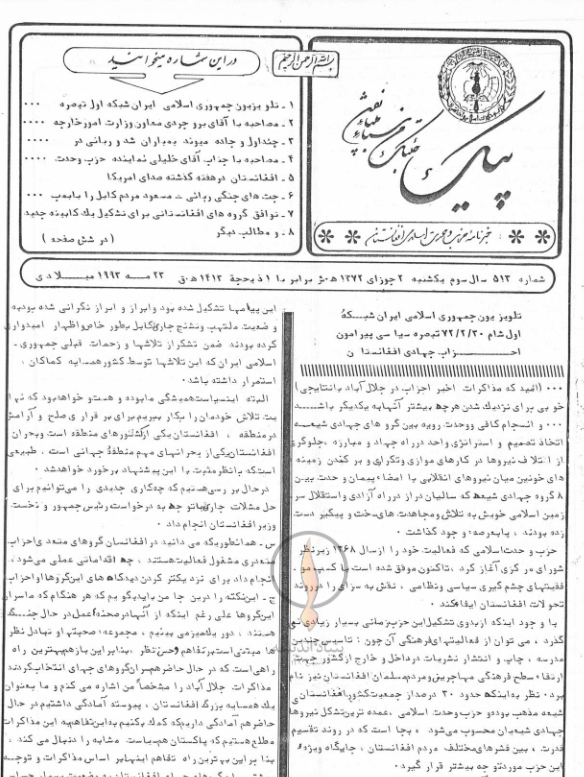 بسم الله الرحمن الرحیم
پیک
خبرنامه حزب وحدت اسلامی افغانستان
در این شماره میخوانید
۱ ـ تلویزیون جمهوری اسلامی ایران شبکه اول تبصره ۰۰۰
۲ ـ مصاحبه با آقای بروجردی معاون وزارت امور خارجه ۰۰۰۰
۳ ـ چنداول و جاده میوند بمباران شد و ربانی در ۰۰۰۰
۴ ـ مصاحبه با جناب آقای خلیلی نماینده حزب وحدت ۰۰۰۰
۵ ـ افغانستان در هفته گذشته صدای امریکا
۶ ـ جت های جنگی ربانی ـ مسعود مردم کابل را با بمب ۰۰۰
۷ ـ توافق گروه های افغانستانی برای تشکیل یك کابینه جدید
۸ ـ و مطالب دیگر
(در شش صفحه)
شماره ۵۱۳ سال سوم یکشنبه ۲ جوزای ۱۳۷۲ ه‍.ش برابر با ۱ ذیحجة ۱۴۱۳ ه‍.ق ۲۳ مه ۱۹۹۳ میلادی
تلویزیون جمهوری اسلامی ایران شبکهٔ
اول شام ۷۲/۲/۳۰ تبصره سیاسی پیرامون
احزاب جهادی افغانستان
۰۰۰ (امید که مذاکرات اخیر احزاب در جلال آباد با نتایج)
خوبی برای نزدیك شدن هرچه بیشتر آنها به یکدیگر باشد
۰۰۰ و انسجام کافی و وحدت رویه بین گروهای جهادی شیعه
اتخاذ تصمیم و استراتژی واحد در راه جهاد و مبارزه ، جلوگیری
از اتلاف نیروها در کارهای موازی و تکراری و بر کندن زمینه های
خونین میان نیروهای انقلابی با امضاء پیمان وحدت بین
۸ گروه جهادی شیعه که سالیان دراز در راه آزادی و استقلال سر
زمین اسلامی خویش به تلاش و مجاهدت های سخت و پیگیر دست
زده بودند ، پا بعرصهء وجود گذاشت ۰
حزب وحدت اسلامی که فعالیت خود را از سال ۱۳۶۸ زیر نظر
شورای مرکزی آغاز کرد ، تاکنون موفق شده است با کسب مو
فقیتهای چشم گیری سیاسی و نظامی ، نقش به سزای را در روند
تحولات افغانستان ایفاء کند ۰
با وجود اینکه از بدوی تشکیل این حزب زمانی بسیار زیادی نمی
گذرد ، می توان از فعالیتهای فرهنگی آن چون : تاسیس چندین
مدرسه ، چاپ و انتشار نشریات در داخل و خارج از کشور جهت
ارتقاء سطح فرهنگی مهاجرین و مردم مسلمان افغانستان نیز نام
برد ۰ نظر به اینکه حدود ۳۰ درصد از جمعیت کشور افغانستان
شیعه مذهب بوده و حزب وحدت اسلامی ، عمده ترین تشکل نیروها
جهادی شیعیان محسوب می شود ، بجا است که در روند تقسیم
قدرت ، بین قشرهای مختلف مردم افغانستان ، جایگاه ویژهء
این حزب مورد توجه بیشتر قرار گیرد ۰
این پیامها تشکیل شده بود وابراز و ابراز نگرانی شده بود به
وضعیت ملتهب و تشنج جاری کابل بطور خاص واظهار امیدواری
کرده بودند ضمن تشکر از تلاشها و زحمات قبلی جمهوری
اسلامی ایران که این تلاشها توسط کشور همسایه کماکان ،
استمرار داشته باشد ۰
البته این سیاست همیشگی ما بوده و هست و خواهد بود که نها
یت تلاش خودمان را بکار ببریم برای برقراری صلح و آرامش
در منطقه ، افغانستان یکی از کشورهای منطقه است و بحران
افغانستان یکی از بحرانهای مهم منطقهٔ جهانی است ، طبیعی
است که با نظر مثبت با این پیشنهاد برخورد خواهد شد ۰
در حال بررسی هستیم که چه کاری جدیدی را می توانیم برای
حل مشکلات جاری با توجه به درخواست رئیس جمهور و نخست
وزیر افغانستان انجام داد ۰
س ـ همانطوریکه می دانید در افغانستان گروهای متعددی احزاب
متعددی مشغول فعالیت هستند ، چه اقداماتی عملی می شود
انجام داد برای نزدیکتر کردن دیدگاه های این گروها و احزاب
ج ـ این نکته را در این جا من باید بگویم که هر هنگام که ما سران
این گروها علی رغم اینکه از آنها در صحنهء عمل در حال جنگ
هستند ، دور یك میز می بینیم ، مجموعهء صحبتها و تبادل نظر
ها مبتنی است بر تفاهم و حسن نظر ، بنا بر این باز هم بهترین راه
راهی است که در حال حاضر هم سران گروهای جهادی انتخاب کردند
مذاکرات جلال آباد را مشخصاً من اشاره می کنم و ما به عنوان
یك همسایه بزرگ افغانستان ، پیوسته آمادگی داشتیم در حال
حاضر هم آمادگی داریم که کمك بکنیم به این تفاهم به این مذاکرات
مطلع هستیم که پاکستان هم سیاست مشابه را دنبال می کند ،